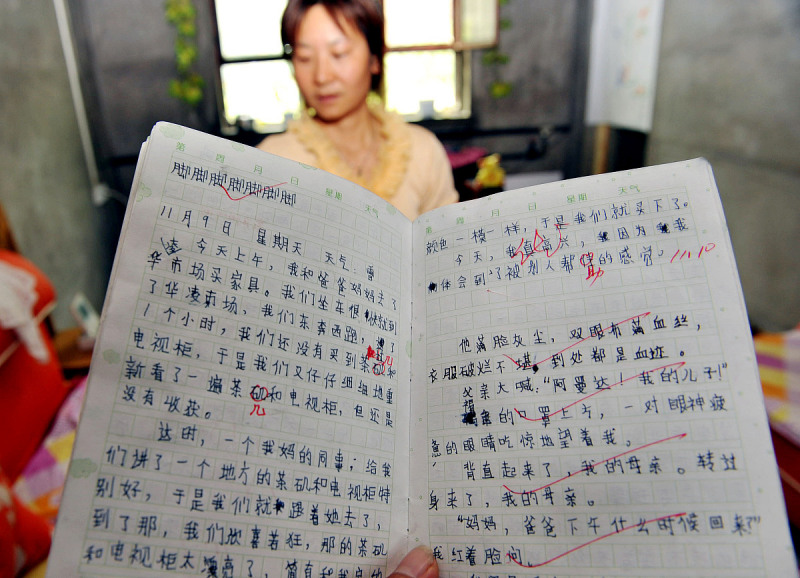 第 周 月 日 星期 天气
脚脚脚脚脚脚脚脚
11月9日 星期天 天气:雷
凌 今天上午,我和爸爸妈妈去了
华市场买家具。我们坐车很快就到
了华凌市场,我们东奔西跑,逛了
1个小时,我们还没有买到茶矶和
几
电视柜,于是我们又仔仔细细地重
新看了一遍茶矶和电视柜,但还是
几
没有收获。
这时,一个我妈的同事;给我
们讲了一个地方的茶矶和电视柜特
别好,于是我们就跟着她去了,
到了那,我们欣喜若狂,那的茶矶
和电视柜太漂亮了,简直和我家的
第 周 月 日 星期 天气
颜色一模一样,于是我们就买下了。
今天,我真高兴,因为我
体会到了被别人帮的感觉。 11.10
助
他满脸灰尘,双眼布满血丝,
衣服破烂不堪,到处都是血迹。
父亲大喊:"阿曼达!我的儿子!"
的口罩上方,一对眼神疲
惫的眼睛吃惊地望着我。
背直起来了,我的母亲。转过
身来了,我的母亲。
"妈妈,爸爸下午什么时候回来?"
我红着脸问。